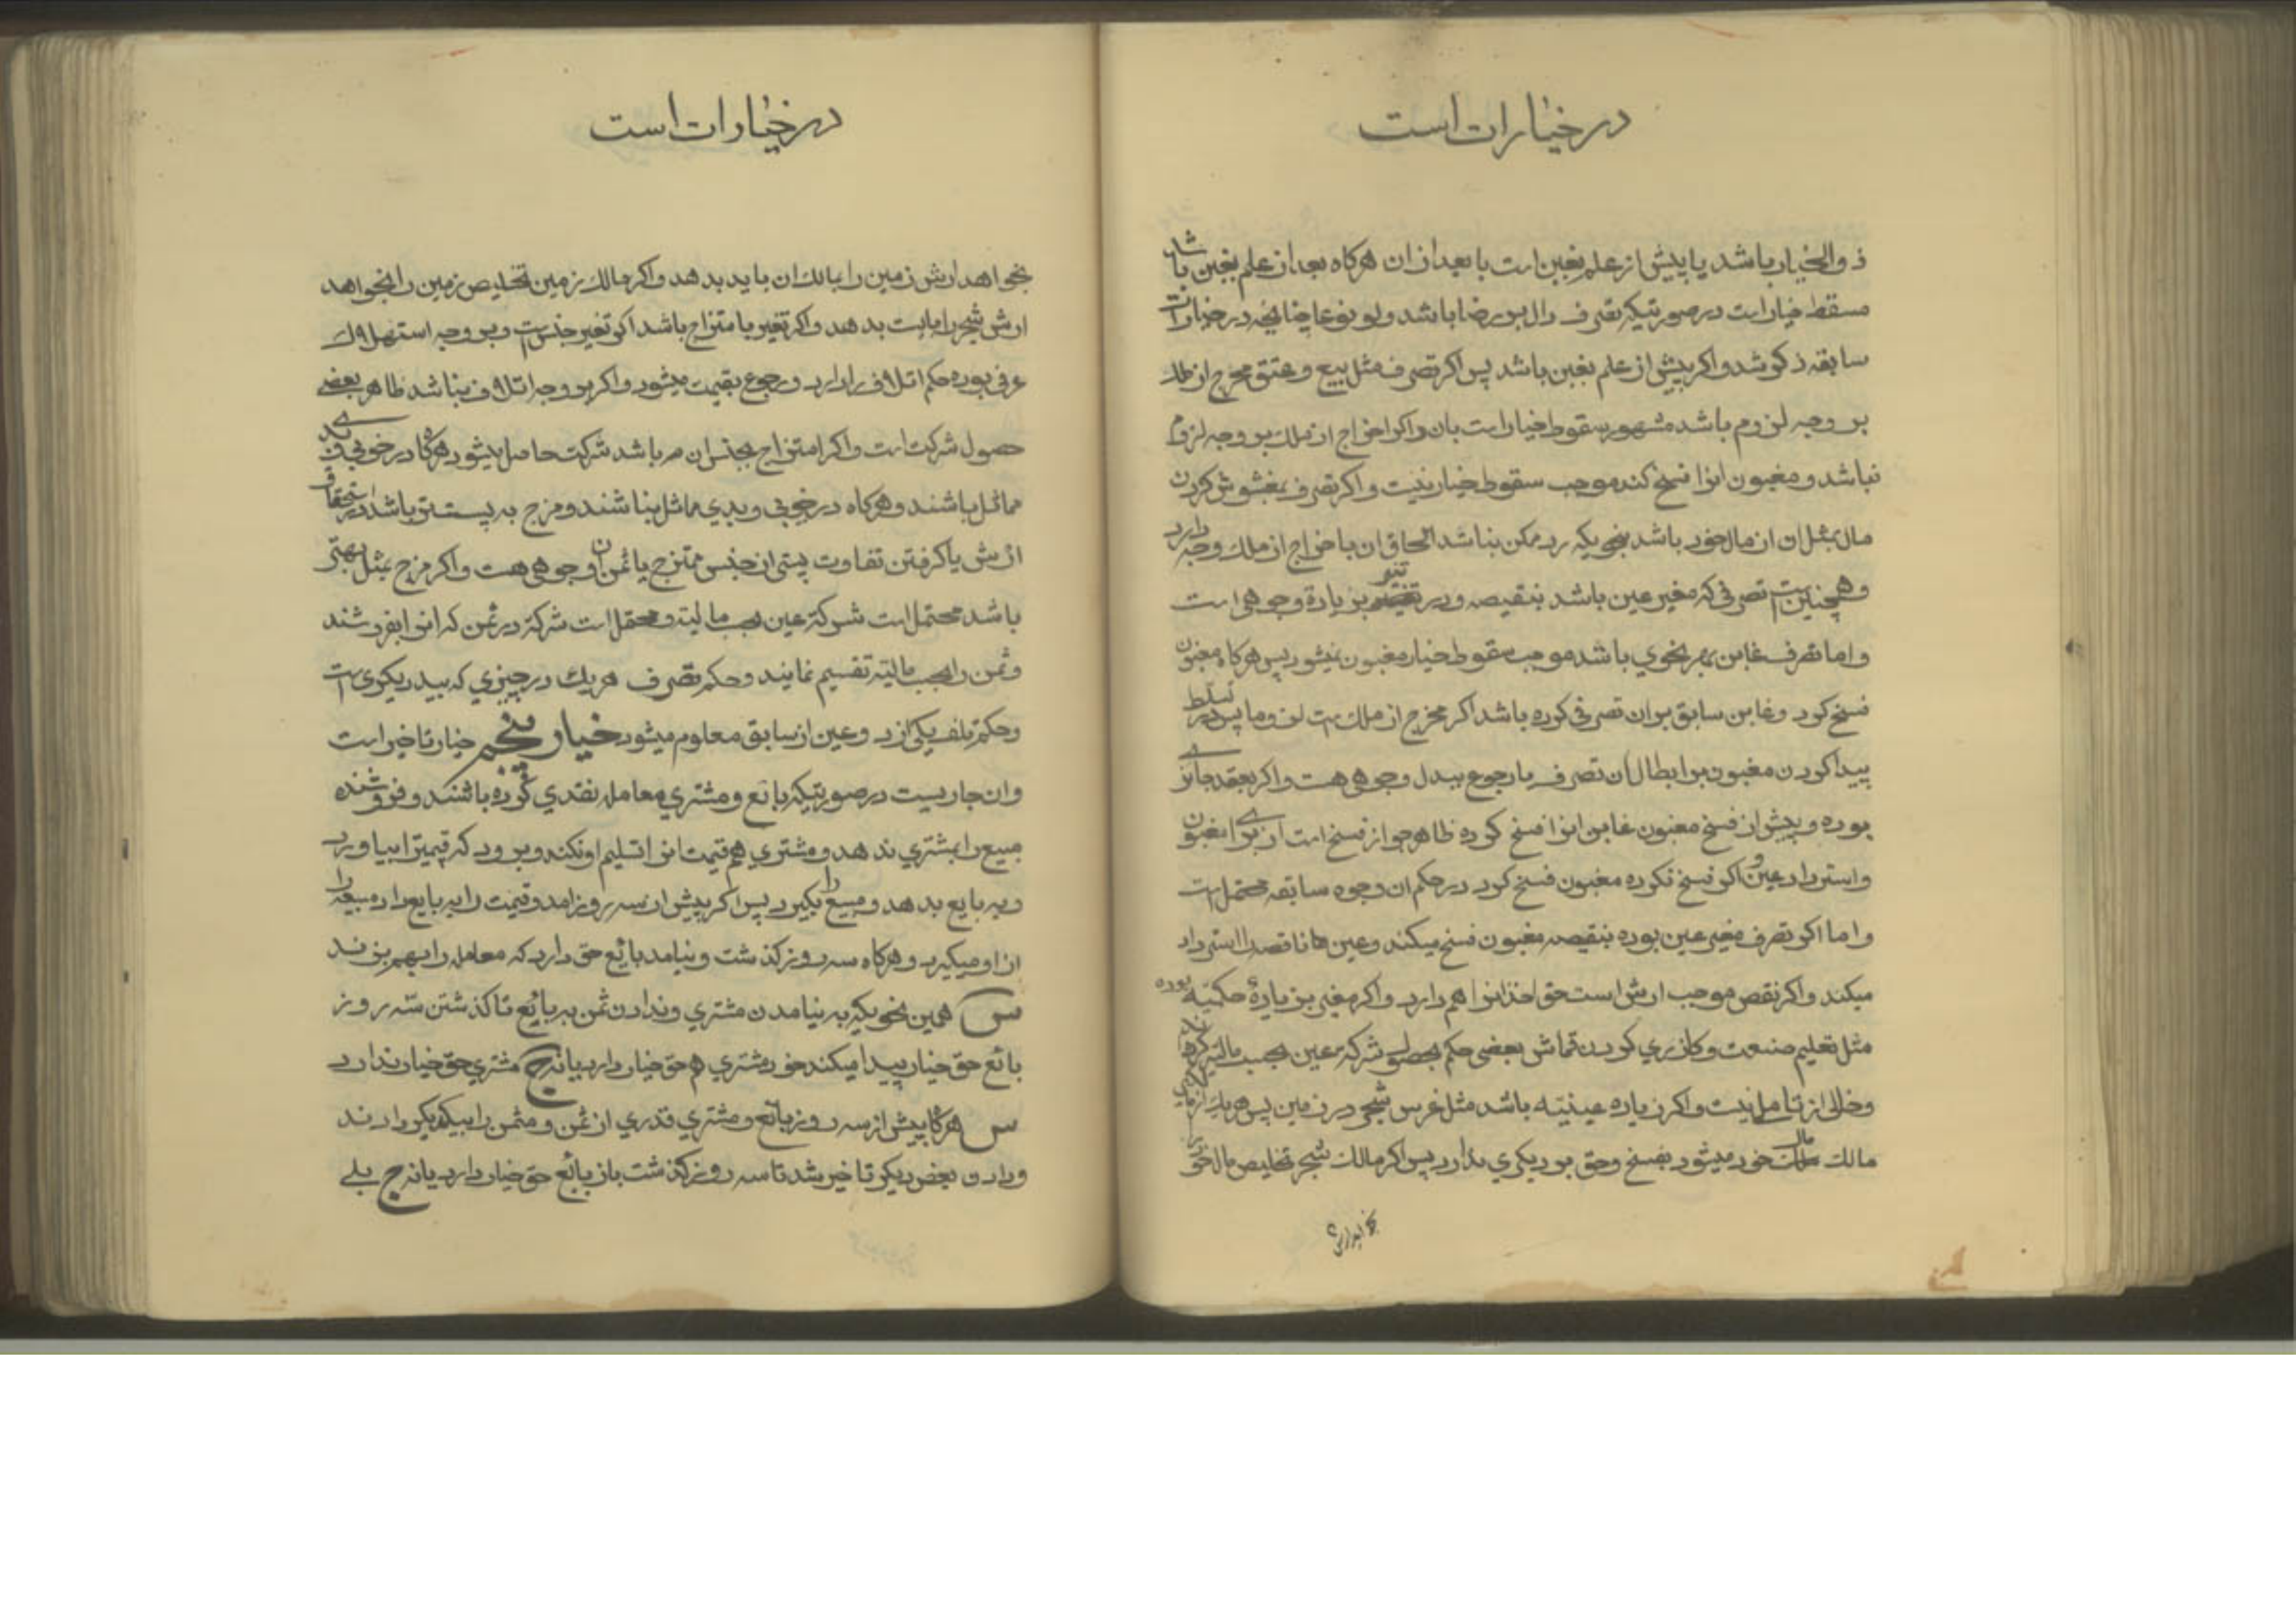 در خیارات است
ذوالخیار باشد یا پیش از علم بغبن است یا بعد از ان هرکاه بعد از علم بغبن باشد
مسقط خیار است در صورتیکه تصرف دال بر رضا باشد ولو نوعا چنانچه در خیارات
سابقه ذکر شد واکر پیش از علم بغبن باشد پس اکر تصرف مثل بیع و عتق مخرج از ملک
بر وجه لزوم باشد مشهور سقوط خیار است بان واکر اخراج از ملک بر وجه لزوم
نباشد و مغبون انرا فسخ کند موجب سقوط خیار نیست و اکر تصرف بمغشوش کردن
مال بمثل ان از مال خود باشد بنحویکه رد ممکن نباشد الحاق ان باخراج از ملک وجه دارد
وهمچنین است تصرفی که مغیر عین باشد بنقیصه و در تغیر بزیادة وجوهی است
و اما تصرف غابن بهر نحوی باشد موجب سقوط خیار مغبون نمیشود پس هرکاه مغبون
فسخ کرد و غابن سابق بر ان تصرفی کرده باشد اکر مخرج از ملک است لزوما پس در تسلط
پیدا کردن مغبون بر ابطال ان تصرف یا رجوع ببدل وجوهی هست واکر بعقد جائزی
بوده و پیش از فسخ مغبون غابن انرا فسخ کرده ظاهر جواز فسخ است از برای مغبون
واسترداد عین و اکر فسخ نکرده مغبون فسخ کرد در حکم ان وجوه سابقه محتمل است
و اما اکر تصرف مغیر عین بوده بنقیصه مغبون فسخ میکند وعین ناقصه را استرداد
میکند واکر نقص موجب ارش است حق اخذ انرا هم دارد واکر مغیر بزیادة حکمیه بوده
مثل تعلیم صنعت و کازری کردن قماش بعضی حکم بحصول شرکة عین بحسب مالیة کرده
وخالی از تامل نیست واکر زیاده عینیه باشد مثل غرس شجر در زمین پس هر یک از
مالک مال خود میشود بفسخ وحق بر دیکری ندارد پس اکر مالک شجر تخلیص مال خود
بخواهد ارش
در خیارات است
بخواهد ارش زمین را بمالک ان باید بدهد واکر مالک زمین تخلیص زمین را بخواهد
ارش شجر را بایست بدهد واکر تغیر بامتزاج باشد اکر تغیر جنس است و بر وجه استهلاک
عرفی بوده حکم اتلاف را دارد و رجوع بقیمت میشود واکر بر وجه اتلاف نباشد ظاهر بعضی
حصول شرکت است واکر امتزاج بجنس ان هم باشد شرکت حاصل میشود هرکاه در خوبی وبدی
مماثل باشند وهرکاه در خوبی وبدی مماثل نباشند ومزج به پست تر باشد در استحقاق
ارش یا کرفتن تفاوت پستی از جنس ممتزج یا ثمن ان وجوهی هست واکر مزج بمثل بهتر
باشد محتمل است شرکة عین بحسب مالیة و محتمل است شرکة در ثمن که انرا بفروشند
وثمن را بحسب مالیة تقسیم نمایند وحکم تصرف هر یک در چیزی که بید دیکری است
وحکم تلف یکی از دو عین از سابق معلوم میشود خیار پنجم خیار تاخیر است
وان جاریست در صورتیکه بائع و مشتری معامله نقدی کرده باشند و فروشنده
مبیع را بمشتری ندهد و مشتری هم قیمت انرا تسلیم او نکند و برود که قیمترا بیاورد
وبه بایع بدهد و مبیع را بکیرد پس اکر پیش از سه روز امد و قیمت را به بایع داد مبیعرا
از او میکیرد وهرکاه سه روز کذشت ونیامد بائع حق دارد که معامله را بهم بزند
س همین نحویکه به نیامدن مشتری وندادن ثمن به بائع تا کذشتن سه روز
بائع حق خیار پیدا میکند خود مشتری هم حق خیار دارد یا نه ج مشتری حق خیار ندارد
س هرکاه پیش از سه روز بائع و مشتری قدری از ثمن و مثمن را بیکدیکر دادند
ودادن بعض دیکر تاخیر شد تا سه روز کذشت باز بائع حق خیار دارد یا نه ج بلی